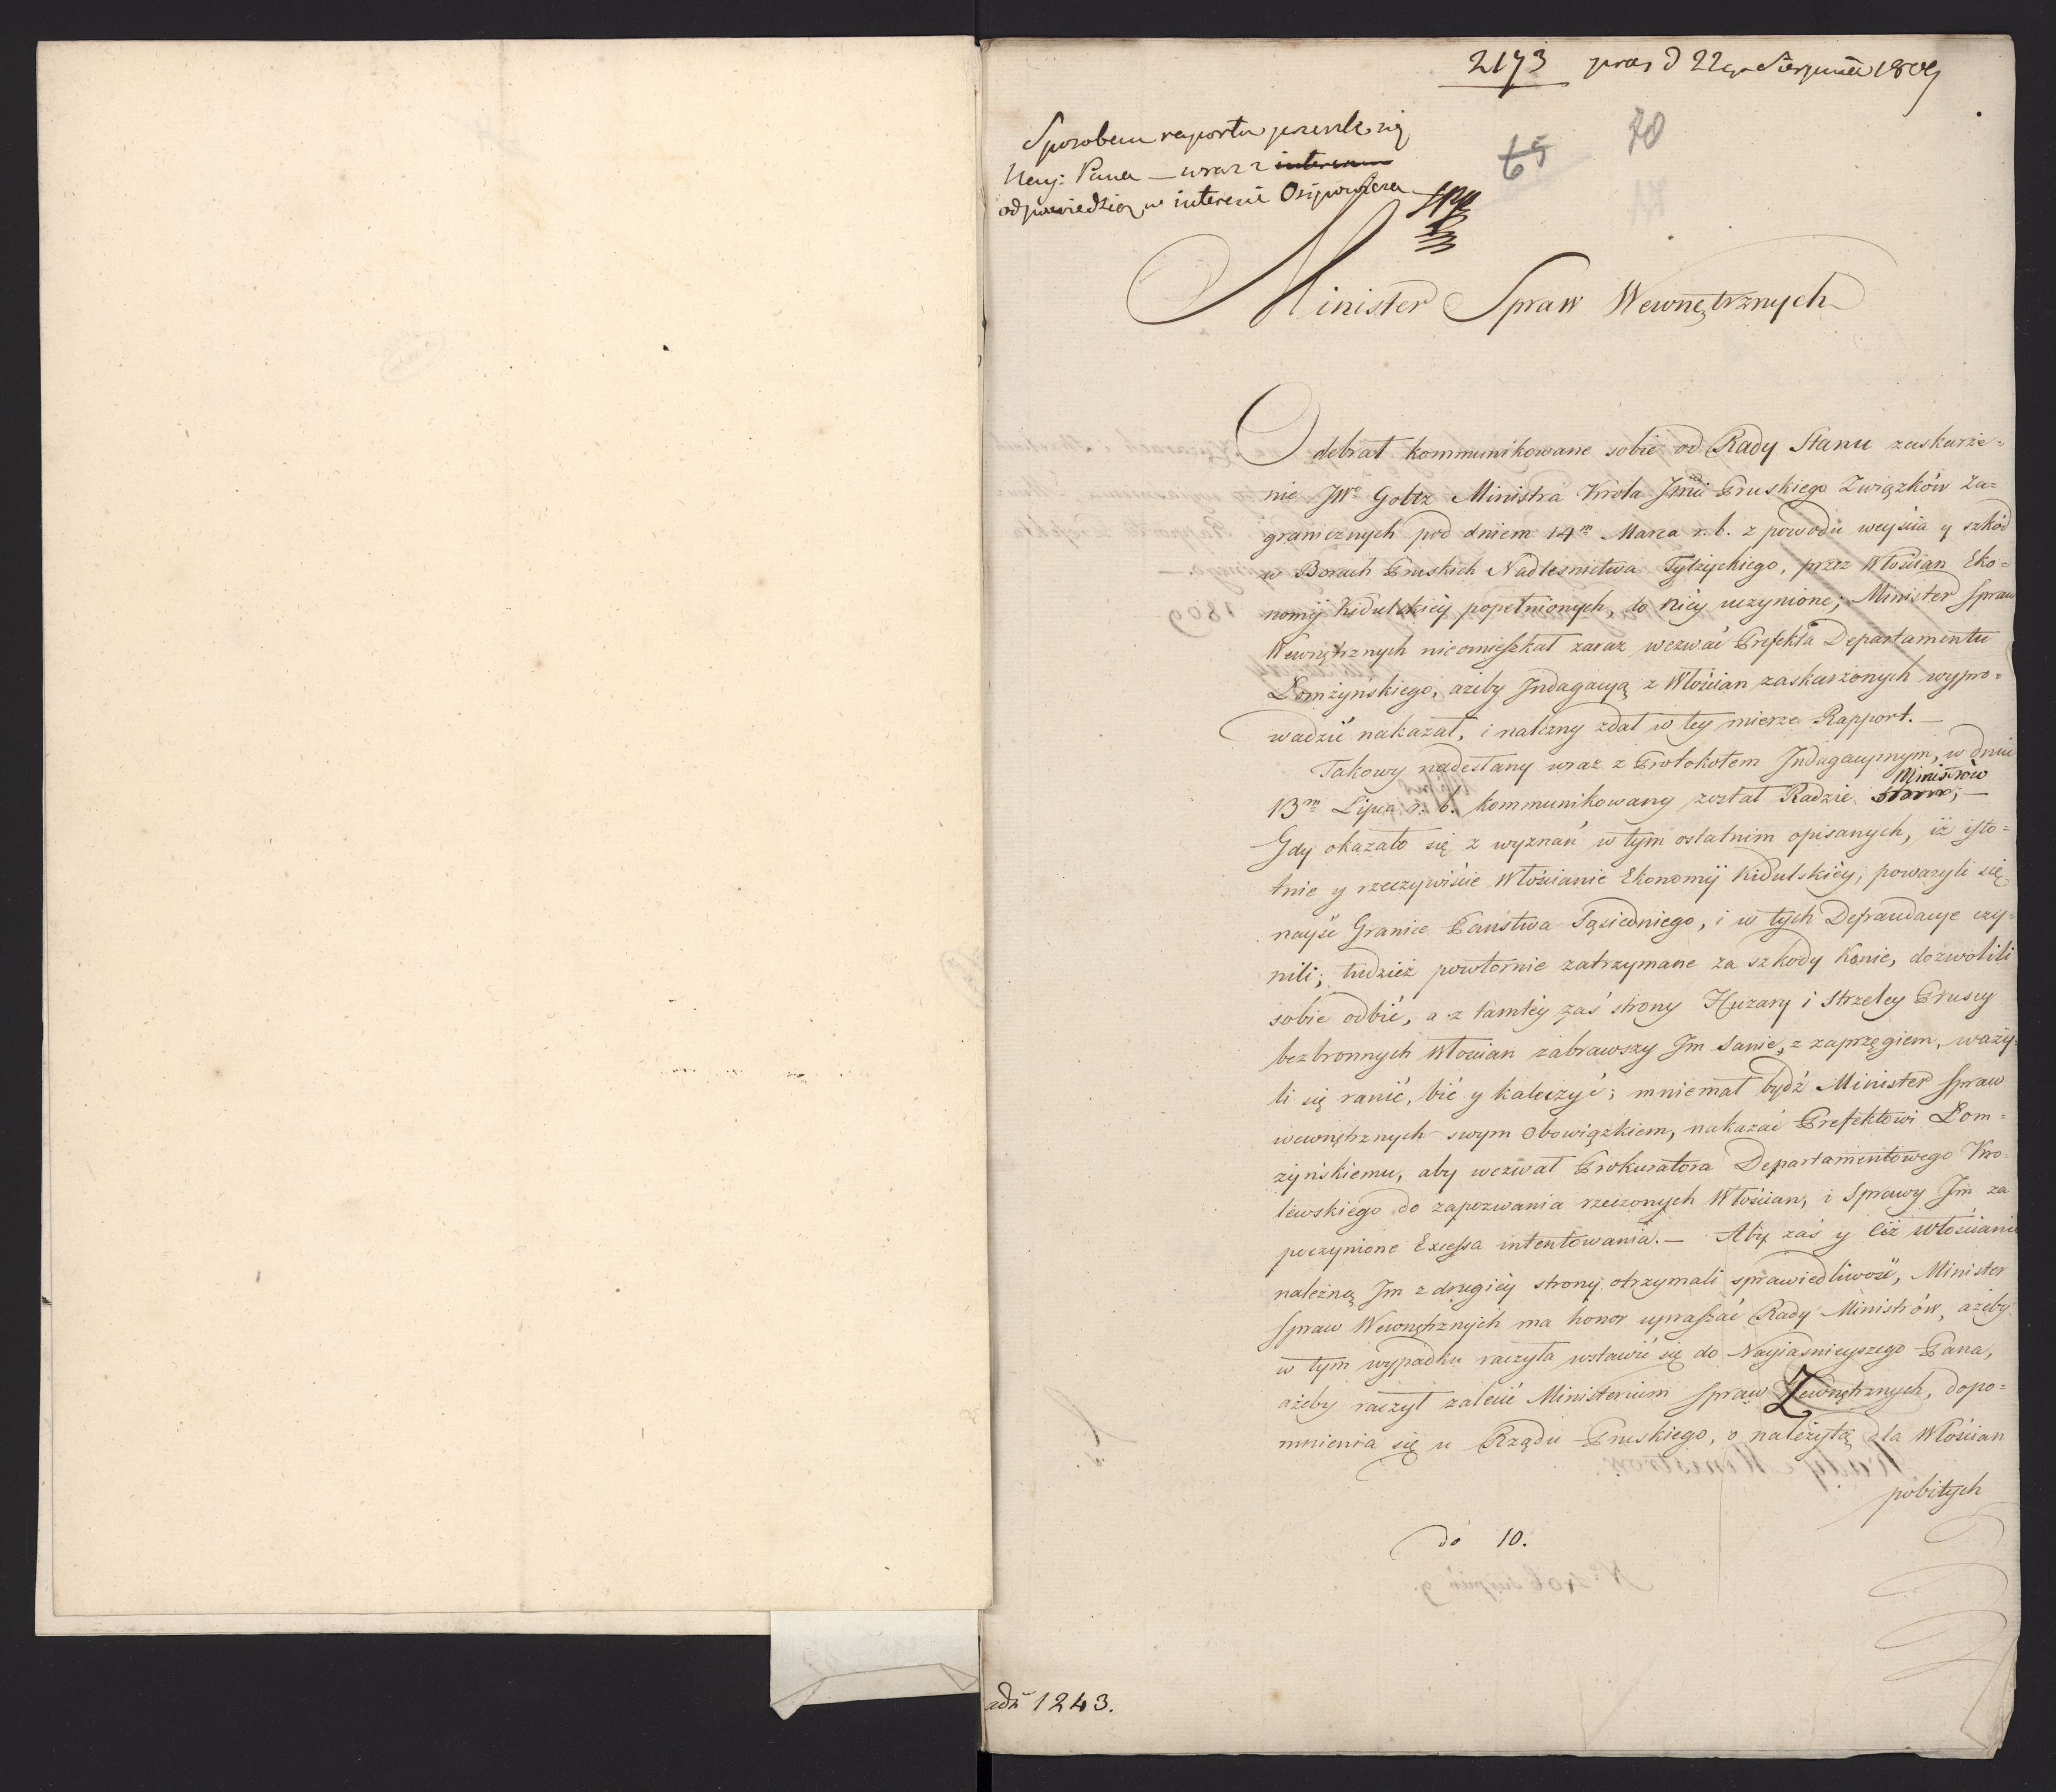 2173 praes d 22go Sierpnia 1809
65 70
Sposobem raportu prześle się
Nayj: Pana — wraz z interesem
odpowiedzią w interesie Osipowicza
Minister Spraw Wewnętrznych
Odebrał kommunikowane sobie od Rady Stanu zaskarże-
nie JWo Goltz Ministra Króla Jmci Pruskiego Związków Za-
granicznych pod dniem 14m Marca r. b. z powodu weyścia y szkód
w Borach Pruskich Nadleśnictwa Tylżyckiego, przez Włościan Eko-
nomij Kidulskiéy popełnionych, do Niéy uczynione; Minister Spraw
Wewnętrznych nieomieszkał zaraz wezwać Prefekta Departamentu
Łomżyńskiego, ażeby Jndagacyą z Włościan zaskarżonych wypro-
wadzić nakazał, i należny zdał w tey mierze Rapport. —
Takowy nadesłany wraz z Protokołem Jndagacyinym, w dniu
13m Lipca r. b. kommunikowany został Radzie Stanu; Ministrów —
Gdy okazało się z wyznań w tym ostatnim opisanych, iż isto-
tnie y rzeczywiście Włościanie Ekonomij Kidulskiéy, poważyli się
nayść Granice Państwa Sąsiedniego, i w tych Defraudacye czy-
nili; tudzież powtornie zatrzymane za szkody Konie, dozwolili
sobie odbić, a z tamtéy zaś strony Huzary i Strzelcy Pruscy
bezbronnych Włościan zabrawszy Jm Sanie, z zaprzęgiem, waży-
li się ranić, bić y kaleczyć; mniemał bydź Minister Spraw
wewnętrznych swym Obowiązkiem, nakazać Prefektowi Łom-
żyńskiemu, aby wezwał Prokuratora Departamentowego Kró-
lewskiego do zapozwania rzeczonych Włościan, i Sprawy Jm za
poczynione Excessa intentowania. — Aby zaś y Ciż Włościanie
należną Jm z drugiéy strony otrzymali sprawiedliwość, Minister
Spraw Wewnętrznych ma honor upraszać Rady Ministrów, ażeby
w tym wypadku raczyła wstawić się do Nayiaśnieyszego Pana,
ażeby raczył zalecić Ministerium Spraw Zewnętrznych, dopo-
mnienia się u Rządu Pruskiego, o należytą dla Włościan
pobitych
do 10.
adn 1243.